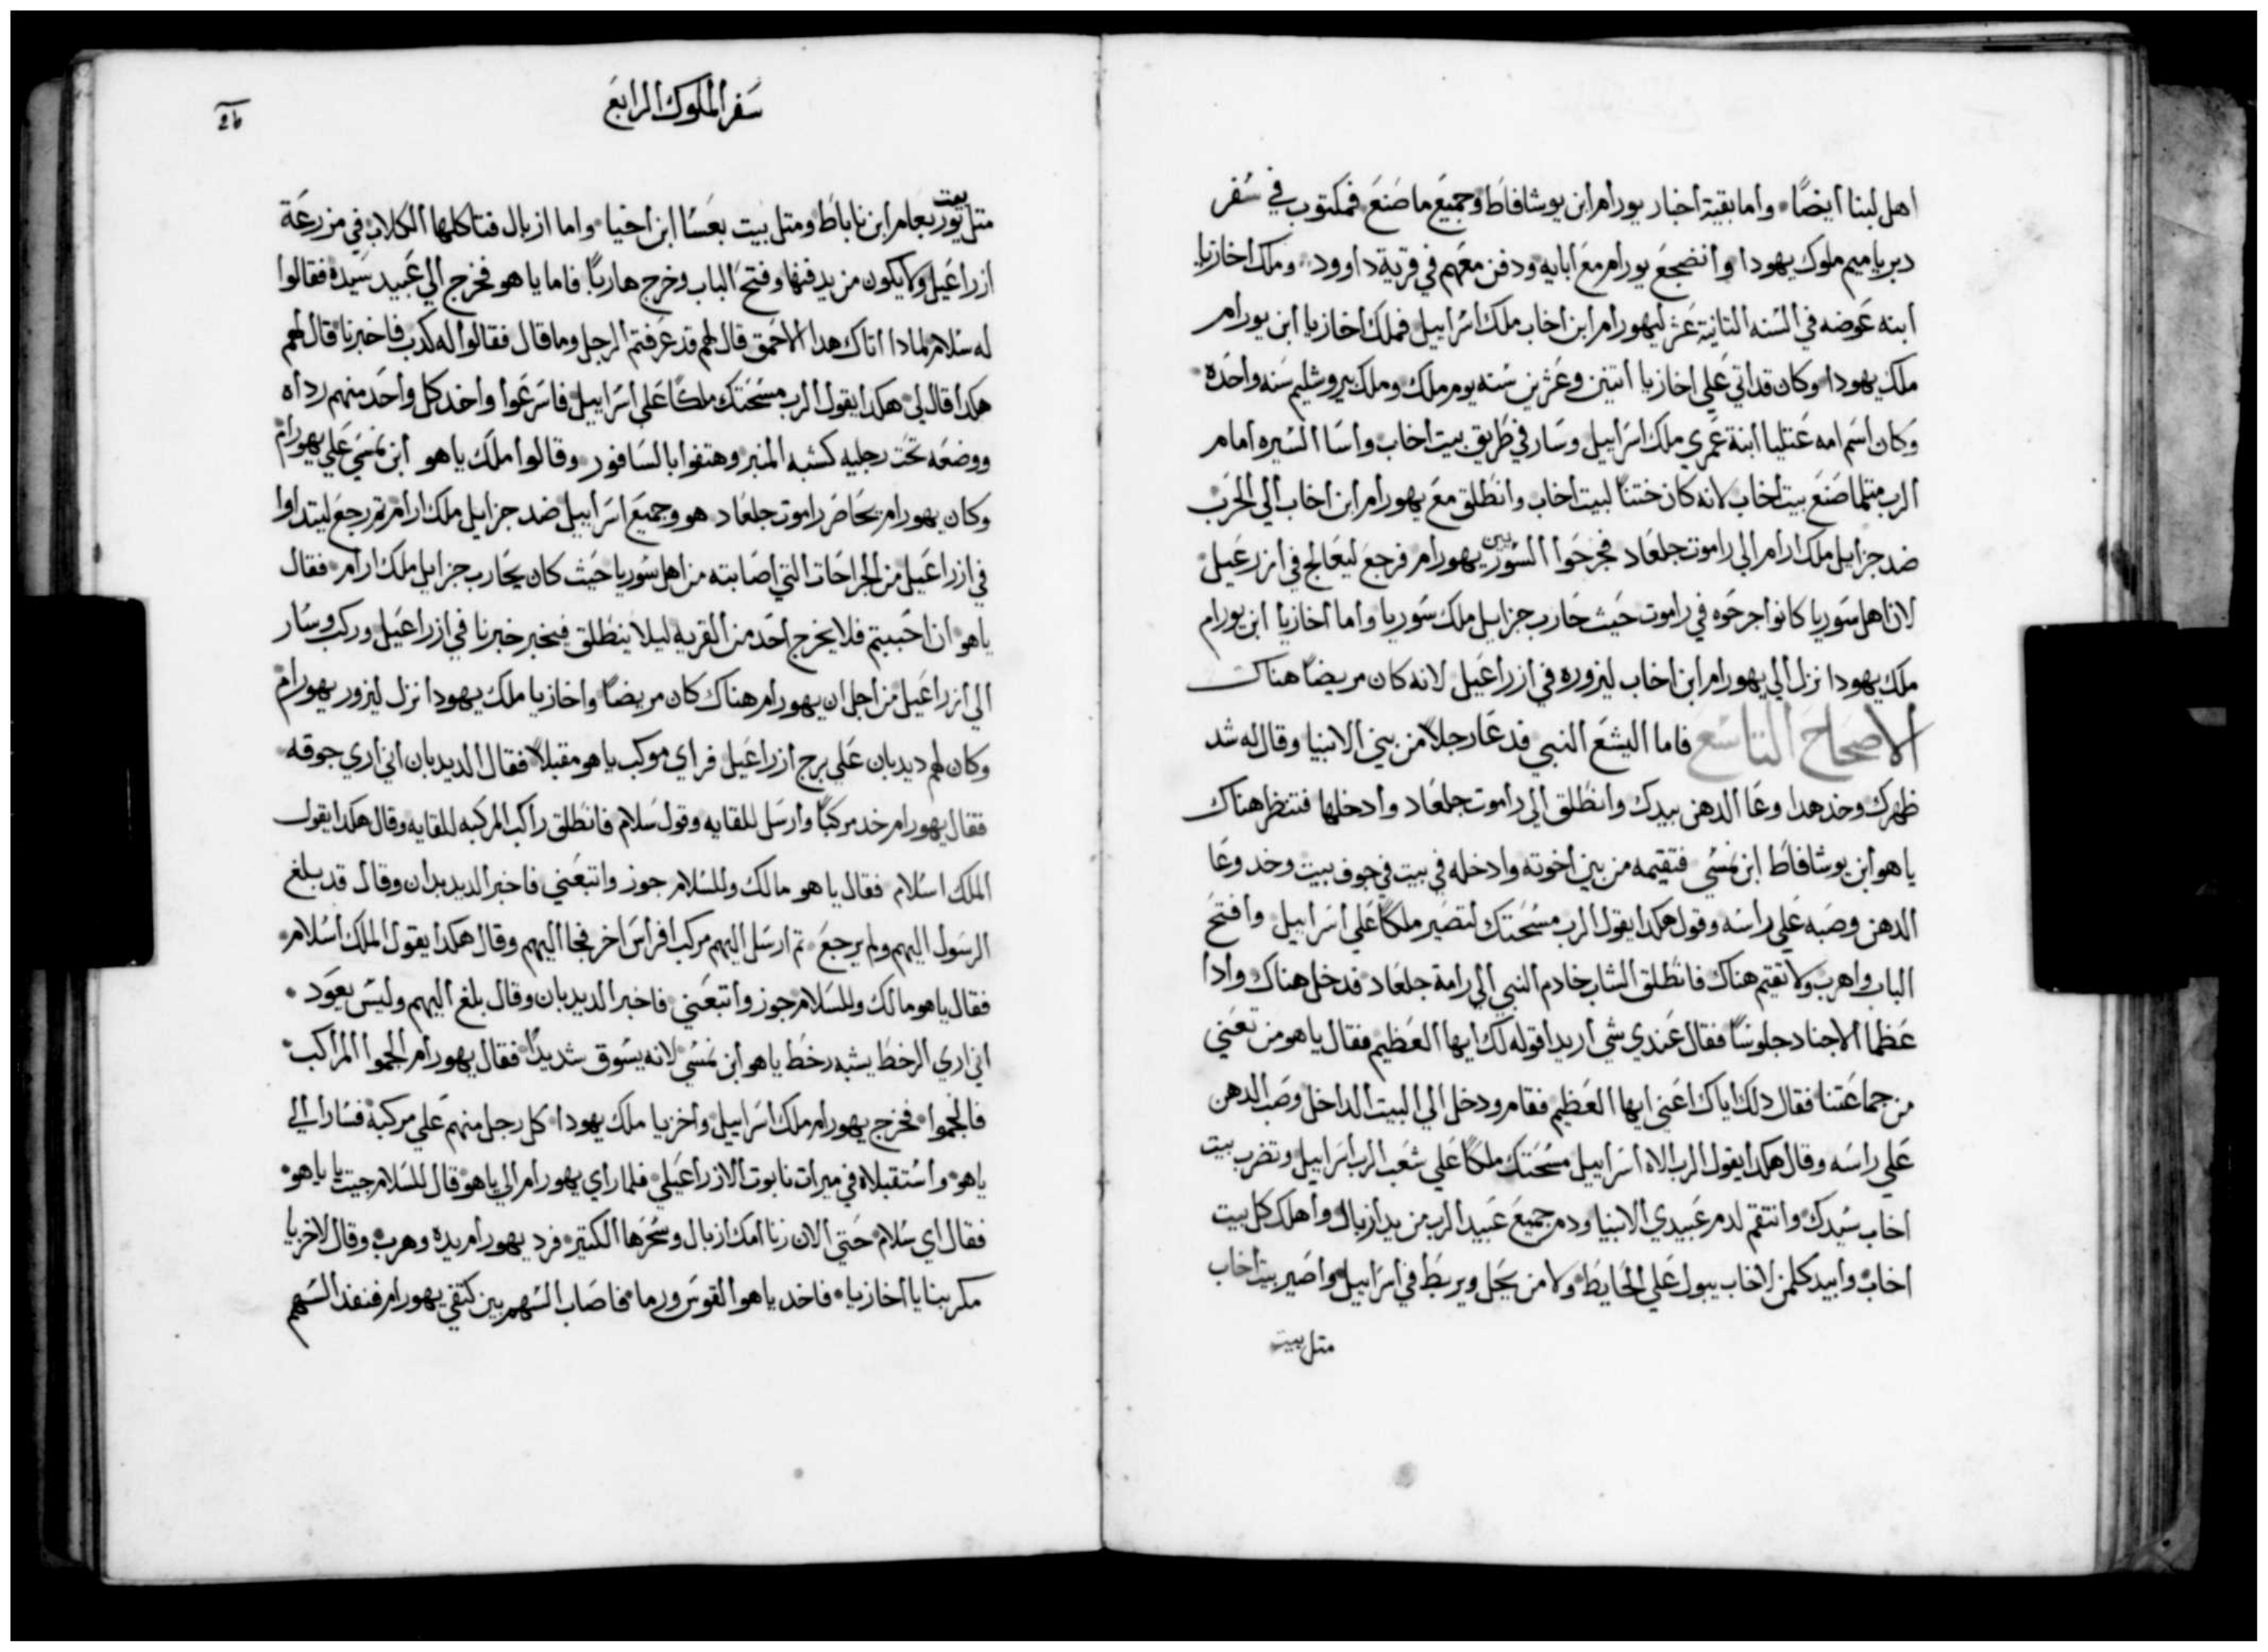 اهل لبنا ايضًا وأما بقية أخبار يورام ابن يوشافاط وجميع ما صنع فمكتوب في سفر
دبرياميم ملوك يهودا وأنضجع يورام مع أبايه ودفن معهم في قرية داوود وملك اخازيا
ابنه عوضه في السنه التانية عشر ليهورام ابن اخاب ملك اسراييل فملك اخازيا ابن يورام
ملك يهودا وكان قد اتي علي اخازيا اتنين وعشرين سنه يوم ملك وملك بيروشليم سنه واحده
وكان اسم امه عتليا ابنة عمري ملك اسراييل وسار في طريق بيت اخاب وأسا السيره امام
الرب متلما صنع بيت اخاب لانه كان ختنًا لبيت اخاب وانطلق مع يهورام ابن اخاب الي الحرب
ضد جزاييل ملك ارام الي راموت جلعاد فجرحوا السوريين يهورام فرجع ليعالج في ازرعيل
لان اهل سوريا كانوا جرحوه في راموت حيث حارب جزاييل ملك سوريا وأما أخازيا ابن يورام
ملك يهودا نزل الي يهورام ابن اخاب ليزوره في أزراعيل لانه كان مريضًا هناك
الاصحاح التاسع فاما اليشع النبي فدعا رجلًا من بني الانبيا وقال له شد
ظهرك وخد هدا وعا الدهن بيدك وانطلق الي راموت جلعاد وأدخلها فتنظر هناك
ياهو ابن يوشافاط ابن نمسي فتقيمه من بين اخوته وادخله في بيت في جوف بيت وخد وعا
الدهن وصبه علي راسه وقول هكدا يقول الرب مسحتك لتصير ملكًا علي اسراييل وافتح
الباب واهرب ولا تقيم هناك فانطلق الشاب خادم النبي الي رامة جلعاد فدخل هناك وادا
عظما الاجناد جلوسًا فقال عندي شي أريد اقوله لك ايها العظيم فقال ياهو من تعني
من جماعتنا فقال دلك اياك اعني ايها العظيم فقام ودخل الي البيت الداخل وصب الدهن
علي راسه وقال هكدا يقول الرب الاه اسراييل مسحتك ملكًا علي شعب الرب اسراييل وتضرب بيت
اخاب سيدك وانتقم لدم عبيدي الانبيا ودم جميع عبيد الرب من يد ازبال وأهلك كل بيت
اخاب وابيد كلمن لاخاب يبول علي الحايط ولا من يحل ويربط في اسراييل واصير بيت اخاب
متل بيت
سفر الملوك الرابع
26
متل بيت يوربعام ابن ناباط ومتل بيت بعسا ابن اخيا واما ازبال فتاكلها الكلاب في مزرعة
ازراعيل ولا يكون من يدفنها وفتح الباب وخرج هاربًا فاما ياهو فخرج الي عبيد سيده فقالوا
له سلام لمادا اتاك هدا الاحمق قال لهم قد عرفتم الرجل وما قال فقالوا له كدب فاخبرنا قال لهم
هكدا قال لي هكدا يقول الرب مسحتك ملكًا علي اسراييل فاسرعوا واخد كل واحد منهم رداه
ووضعه تحت رجليه كشبه المنبر وهتفوا بالسافور وقالوا ملك ياهو ابن نمسي علي يهورام
وكان يهورام يحاصر راموت جلعاد هو وجميع اسراييل ضد جزاييل ملك ارام تم رجع ليتداوا
في ازراعيل من الجراحات التي أصابته من اهل سوريا حيث كان يحارب جزاييل ملك ارام فقال
ياهو ان احببتم فلا يخرج أحد من القريه ليلا ينطلق فيخبر خبرنا في ازراعيل وركب وسار
الي أزراعيل من أجل ان يهورام هناك كان مريضًا واخازيا ملك يهودا نزل ليزور يهورام
وكان لهم ديدبان علي برج أزراعيل فراي موكب ياهو مقبلًا فقال الديدبان اني اري جوقه
فقال يهورام خد مركبًا وأرسل للقايه وقول سلام فانطلق راكب المركبه للقايه وقال هكدا يقول
الملك اسلام فقال ياهو مالك وللسلام جوز واتبعني فاخبر الديدبان وقال قد بلغ
الرسول اليهم ولم يرجع تم ارسل اليهم مركب افراس اخر فجا اليهم وقال هكدا يقول الملك أسلام
فقال ياهو مالك وللسلام جوز وأتبعني فاخبر الديدبان وقال بلغ اليهم وليس يعود
اني اري الرخط يشبه رخط ياهو ابن نمسي لانه يسوق شديدًا فقال يهورام الجموا المراكب
فالجموا فخرج يهورام ملك اسراييل واخزيا ملك يهودا كل رجل منهم علي مركبة فسارا الي
ياهو واستقبلاه في ميرات نابوت الازراعيلي فلما راي يهورام الي ياهو قال للسلام جيت يا ياهو
فقال اي سلام حتي الان زنا امك ازبال وسحرها الكتير فرد يهورام يده وهرب وقال لاخزيا
مكر بنا يا اخازيا فاخد ياهو القوس ورما فاصاب السهم بين كتفي يهورام فنفد السهم